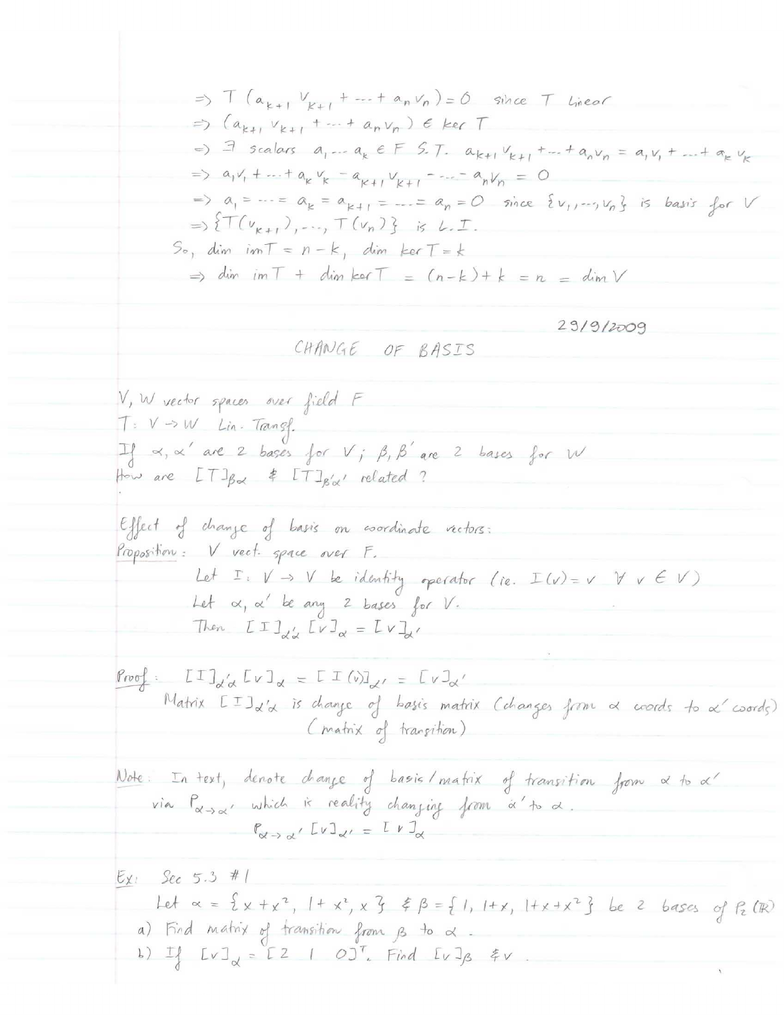 => T(a_{k+1} v_{k+1} + ... + a_n v_n) = 0 since T Linear
=> (a_{k+1} v_{k+1} + ... + a_n v_n) ∈ ker T
=> ∃ scalars a_1 ... a_k ∈ F S.T. a_{k+1} v_{k+1} + ... + a_n v_n = a_1 v_1 + ... + a_k v_k
=> a_1 v_1 + ... + a_k v_k - a_{k+1} v_{k+1} - ... - a_n v_n = 0
=> a_1 = ... = a_k = a_{k+1} = ... = a_n = 0 since {v_1, ..., v_n} is basis for V
=> {T(v_{k+1}), ..., T(v_n)} is L.I.
So, dim im T = n-k, dim ker T = k
=> dim im T + dim ker T = (n-k)+k = n = dim V
29/9/2009
CHANGE OF BASIS
V, W vector spaces over field F
T: V → W Lin. Transf.
If α, α' are 2 bases for V; β, β' are 2 bases for W
How are [T]_{βα} & [T]_{β'α'} related?
Effect of change of basis on coordinate vectors:
Proposition: V vect. space over F.
Let I: V → V be identity operator (ie. I(v) = v ∀ v ∈ V)
Let α, α' be any 2 bases for V.
Then [I]_{α'α} [v]_α = [v]_{α'}
Proof: [I]_{α'α} [v]_α = [I(v)]_{α'} = [v]_{α'}
Matrix [I]_{α'α} is change of basis matrix (changes from α coords to α' coords)
(matrix of transition)
Note: In text, denote change of basis/matrix of transition from α to α'
via P_{α→α'} which is reality changing from α' to α.
P_{α→α'} [v]_{α'} = [v]_α
Ex: Sec 5.3 #1
Let α = {x+x², 1+x², x} & β = {1, 1+x, 1+x+x²} be 2 bases of P_2(ℝ)
a) Find matrix of transition from β to α.
b) If [v]_α = [2 1 0]^T. Find [v]_β & v.